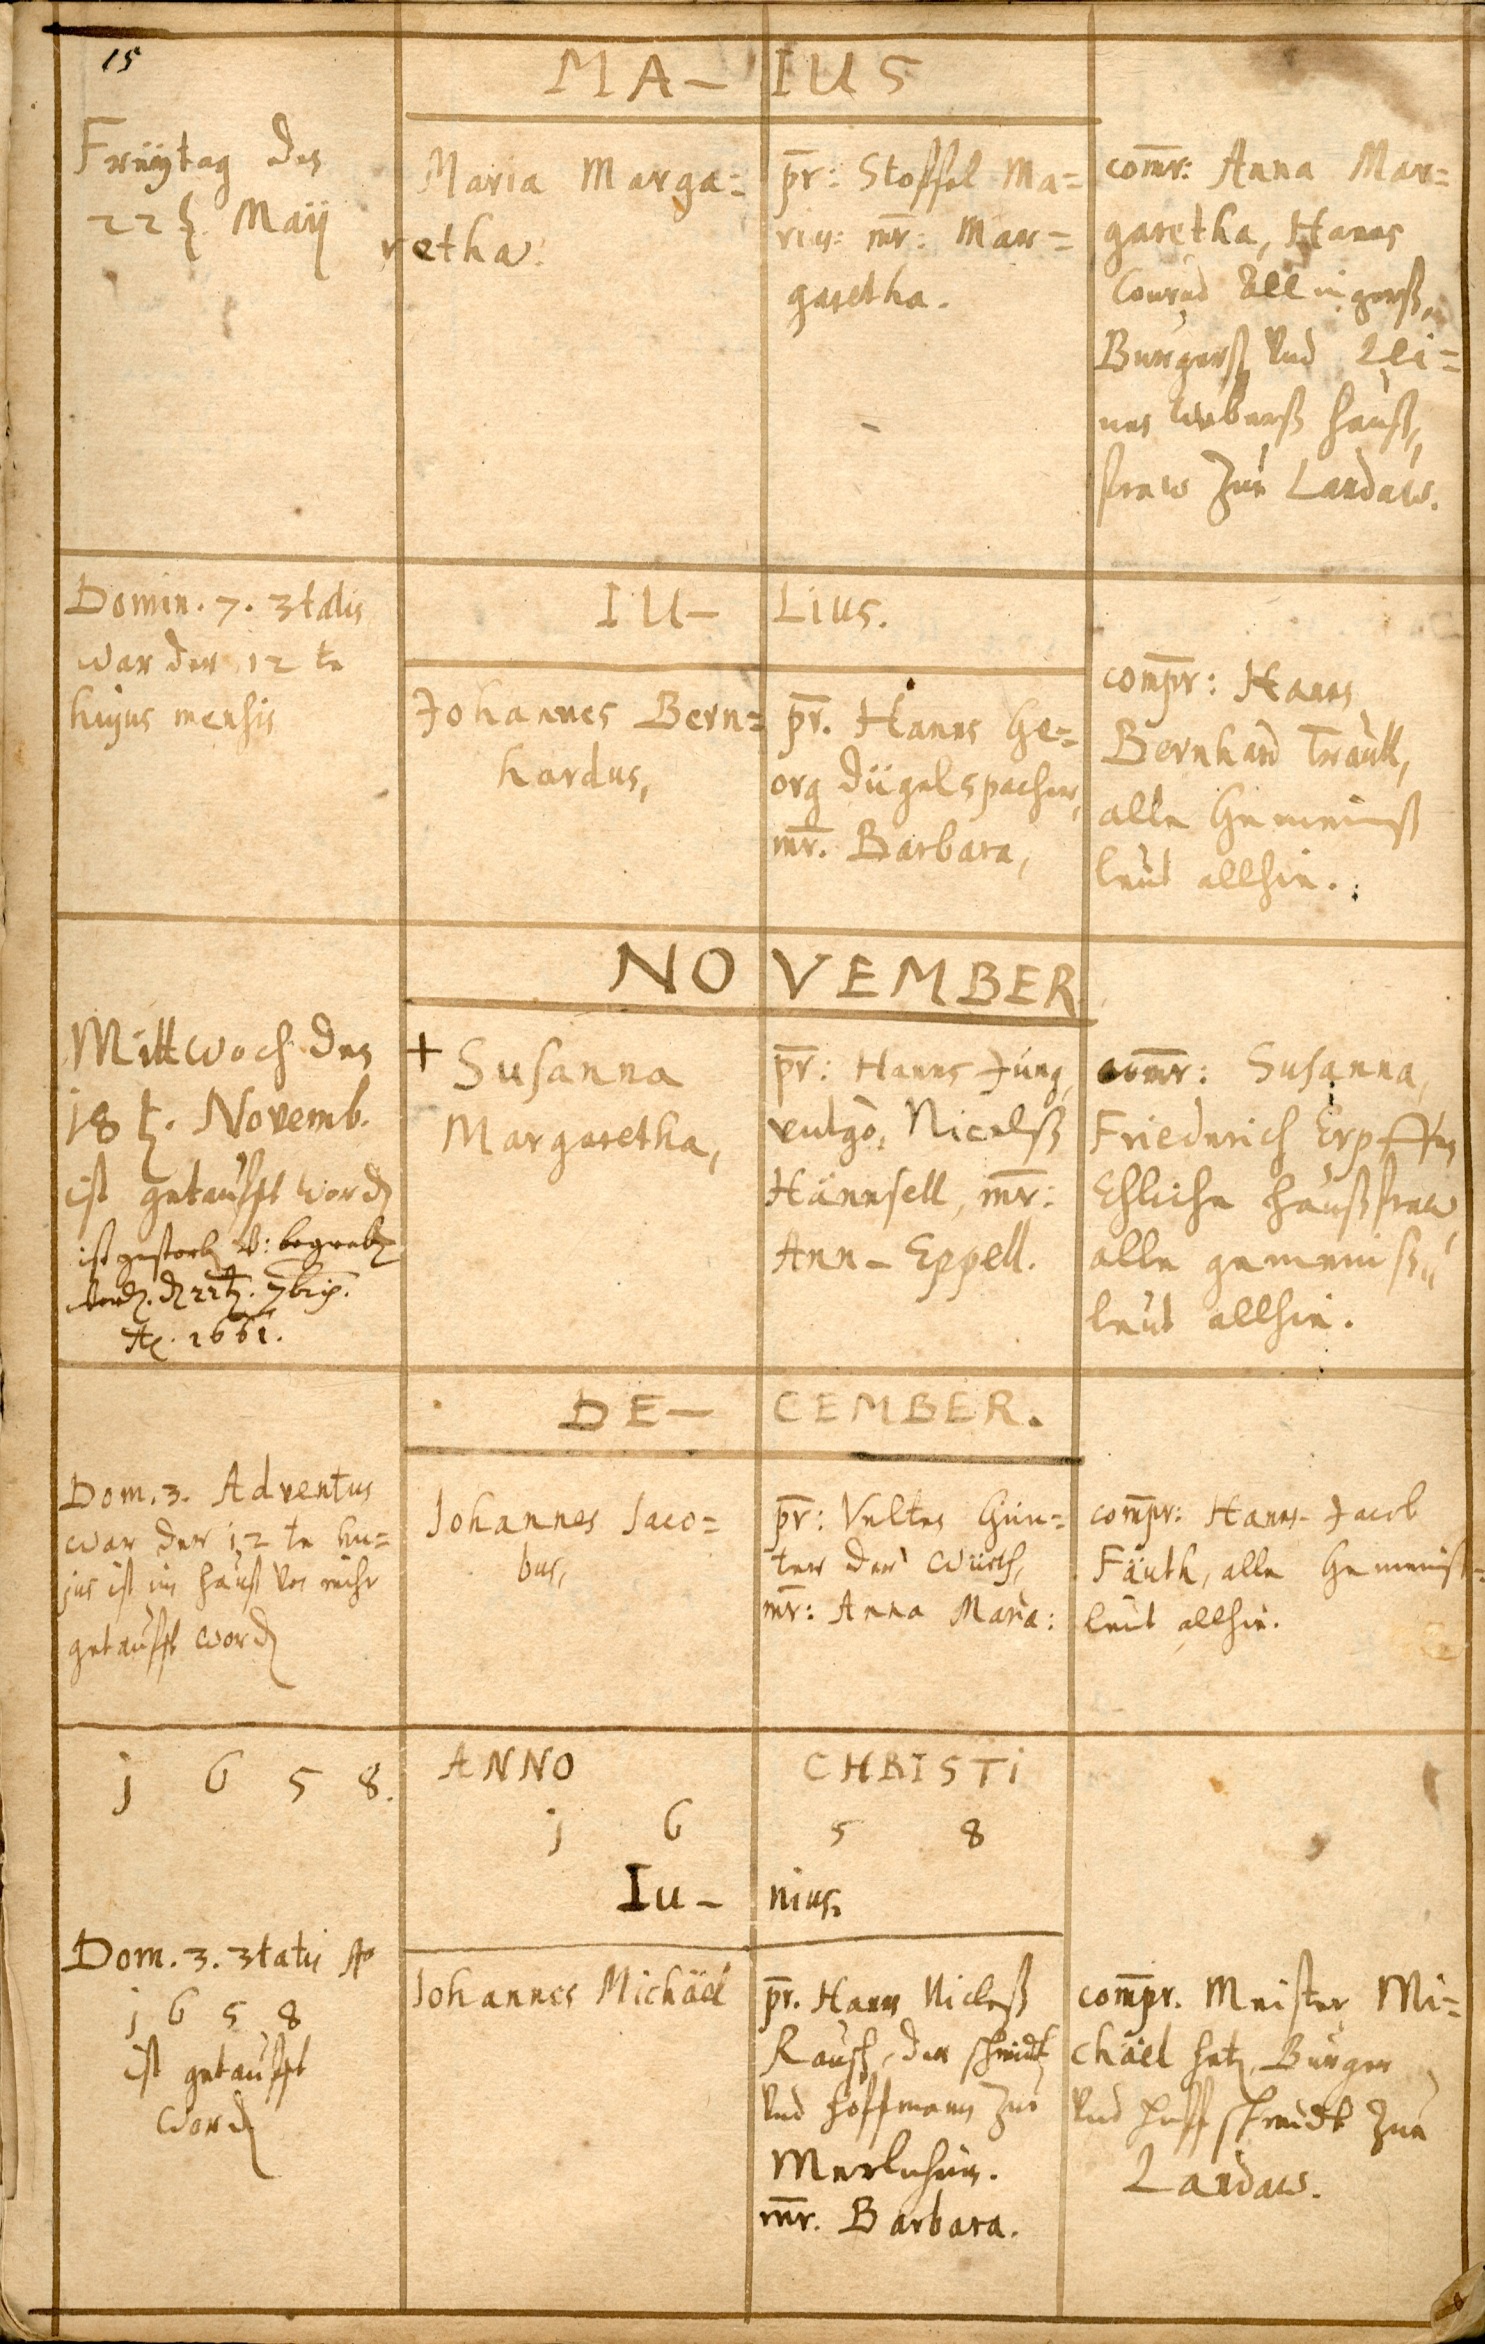 15
MA- IUS
Freÿtag des
22 t. Maÿ
Maria Marga=
retha.
pr: Stoffel Ma=
rius: mr: Mar=
garetha.
comr: Anna Mar=
garetha, Hanns
Conrad Ellingerß,
Burgerß und Lei=
nes weberß hauß,
fraw zur Landaw.
Domin. 7. 3tatis
war der 12 te
hujus mensis
IU- LIUS.
Johannes Bern=
hardus,
pr. Hanns Ge=
org Dügelspacher,
mr. Barbara,
compr: Hanns
Bernhard Trautt,
alle Gemeinß
leut allhie.
NOVEMBER
Mittwoch des
18 t. Novemb.
ist getaufft word
ist gestorb v: begrab
word. d 22 t. 7bris.
Ao. 1661.
+ Susanna
Margaretha,
pr: Hanns Jung,
vulgo, Nicelß
Hännsell, mr:
Ann-Eppell.
comr: Susanna,
Friederich Erpffen
Ehliche haußfraw
alle gemeinß=
leut allhie.
DE- CEMBER.
Dom. 3. Adventus
war der 12 te hu=
jus ist im hauß von mihr
getaufft word
Johannes Jaco=
bus,
pr: Velten Gün=
ter der Würth,
mr: Anna Maria:
compr: Hanns-Jacob
Fäuth, alle Gemeinß=
leut allhie.
j 6 5 8.
ANNO CHRISTI
j 6 5 8
Iu- nius.
Dom. 3. 3tatis Ao
j 6 5 8
ist getaufft
word
Johannes Michäel
pr. Hanns Nicleß
Rausch, der schmidt
und hoffmann zur
Merlheim.
mr. Barbara.
compr. Meister Mi=
chäel hetz, Burger
und huffschmidt zur
Landaw.